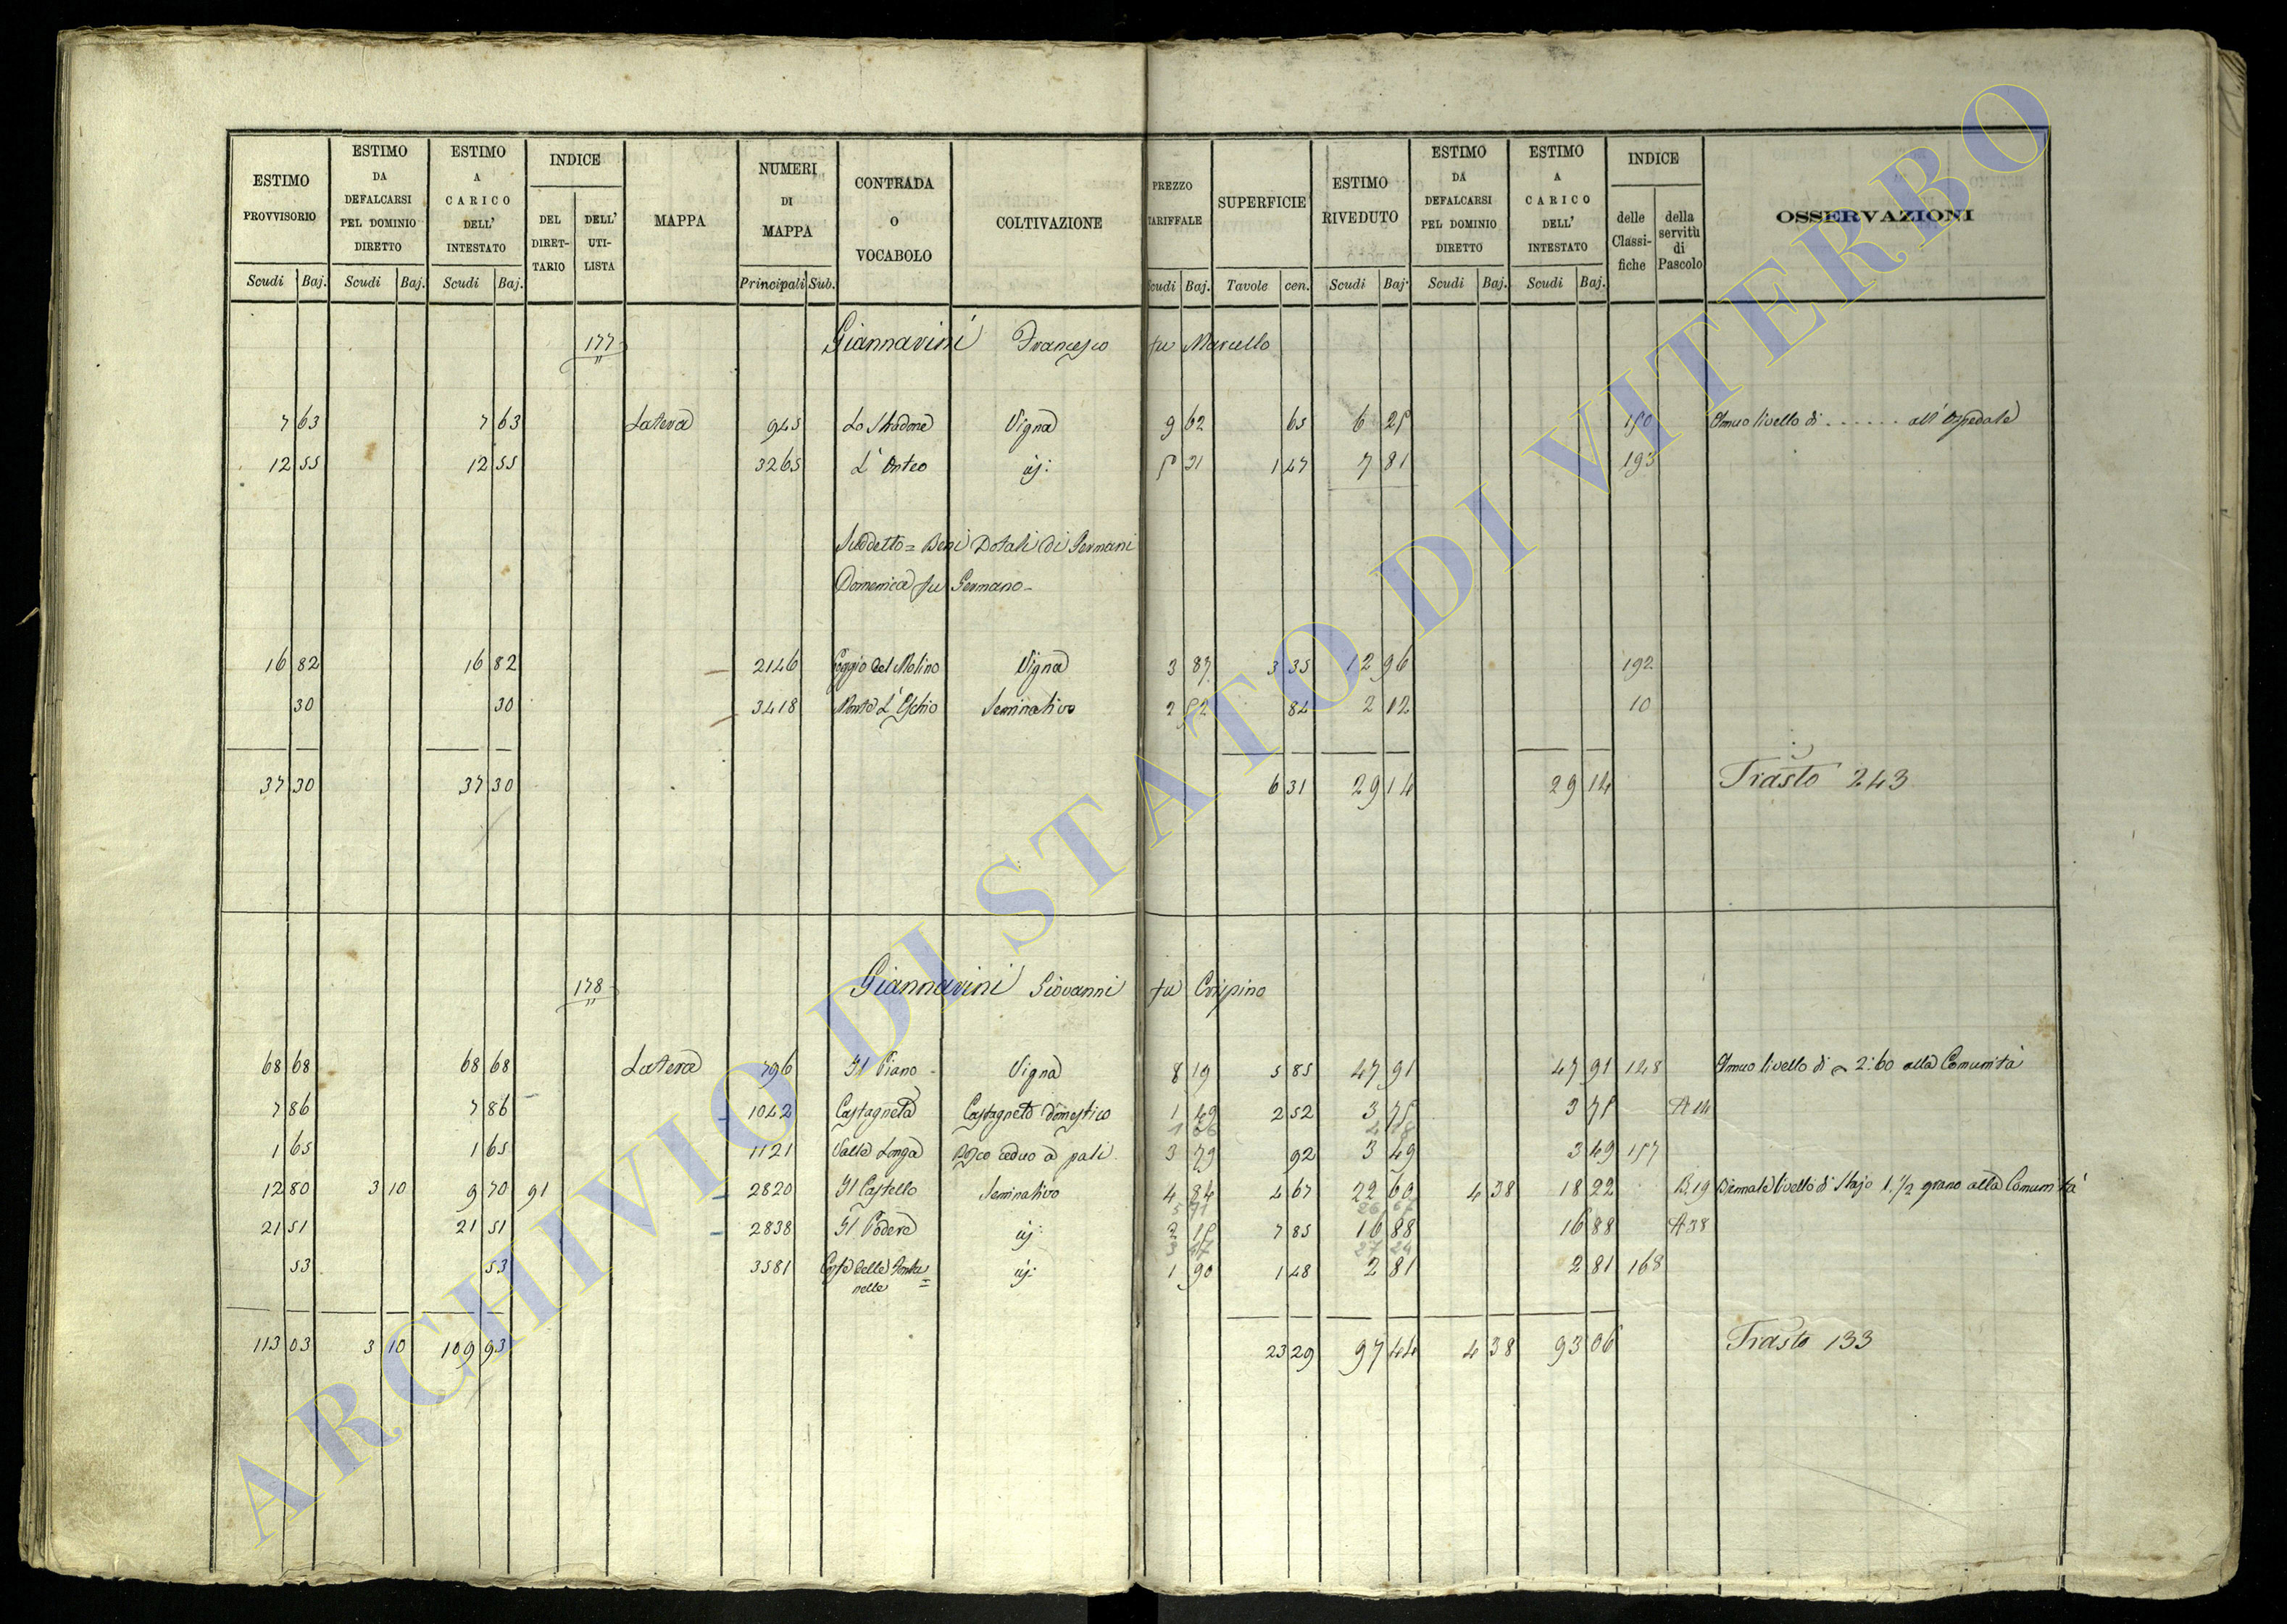 ESTIMO PROVVISORIO Scudi Baj.
ESTIMO DA DEFALCARSI PEL DOMINIO DIRETTO Scudi Baj.
ESTIMO A CARICO DELL' INTESTATO Scudi Baj.
INDICE DEL DIRET- TARIO DELL' UTI- LISTA
MAPPA
NUMERI DI MAPPA Principali Sub.
CONTRADA O VOCABOLO
COLTIVAZIONE
PREZZO TARIFFALE Scudi Baj.
SUPERFICIE Tavole cen.
ESTIMO RIVEDUTO Scudi Baj.
ESTIMO DA DEFALCARSI PEL DOMINIO DIRETTO Scudi Baj.
ESTIMO A CARICO DELL' INTESTATO Scudi Baj.
INDICE delle Classi- fiche della servitù di Pascolo
OSSERVAZIONI
177 Giannarini Francesco fu Marcello
7 63 7 63 Latera 945 Lo Stradone Vigna 9 62 65 6 25 150 Annuo livello di . . . . . . all' Ospedale
12 55 12 55 3265 L' Onteo id: 5 31 1 47 7 81 193
Suddetto = Beni Dotali di Germani
Domenica fu Germano -
16 82 16 82 2146 Poggio del Molino Vigna 3 87 3 35 12 96 192
30 30 3418 Monte L' Eschio Seminativo 2 52 84 2 12 10
37 30 37 30 6 31 29 14 29 14 Trasto 243
178 Giannarini Giovanni fu Crispino
68 68 68 68 Latera 796 Il Piano Vigna 8 19 5 85 47 91 47 91 128 Annuo livello di 2:60 alla Comunità
7 86 7 86 1042 Castagneta Castagneto domestico 1 49 2 52 3 75 3 75 A 14
1 65 1 65 1121 Valle Longa Bosco ceduo a pali 3 79 92 3 49 3 49 157
12 80 3 10 9 70 91 2820 Il Castello Seminativo 4 84 4 67 22 60 4 38 18 22 B.19 Biennale livello di Stajo 1. 1/2 grano alla Comunità
21 51 21 51 2838 Il Podere id: 2 15 7 85 16 88 16 88 A 38
53 53 3581 Coste delle Fonta= nelle id: 1 90 1 48 2 81 2 81 168
113 03 3 10 109 93 23 29 97 44 4 38 93 06 Trasto 133
ARCHIVIO DI STATO DI VITERBO